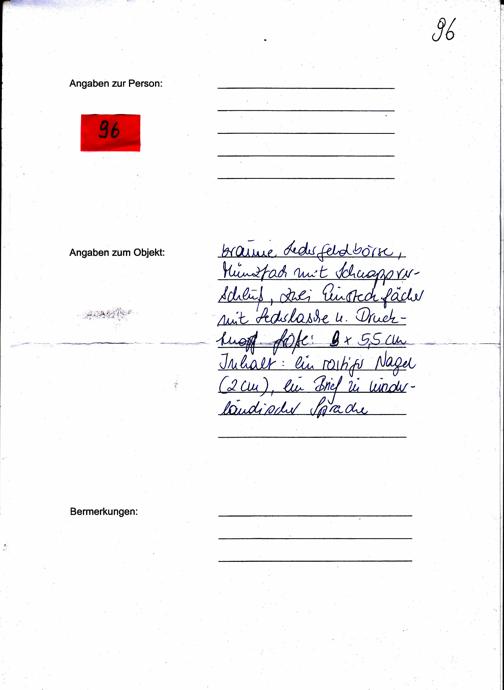 96
Angaben zur Person:
96
Angaben zum Objekt:
braune Ledergeldbörse,
Münzfach mit Schnappver-
schluß, zwei Einsteckfächer
mit Lederlasche u. Druck-
knopf Größe: 8 x 5,5 cm
Inhalt: ein rostiger Nagel
(2 cm), ein Brief in nieder-
ländischer Sprache
Bermerkungen: